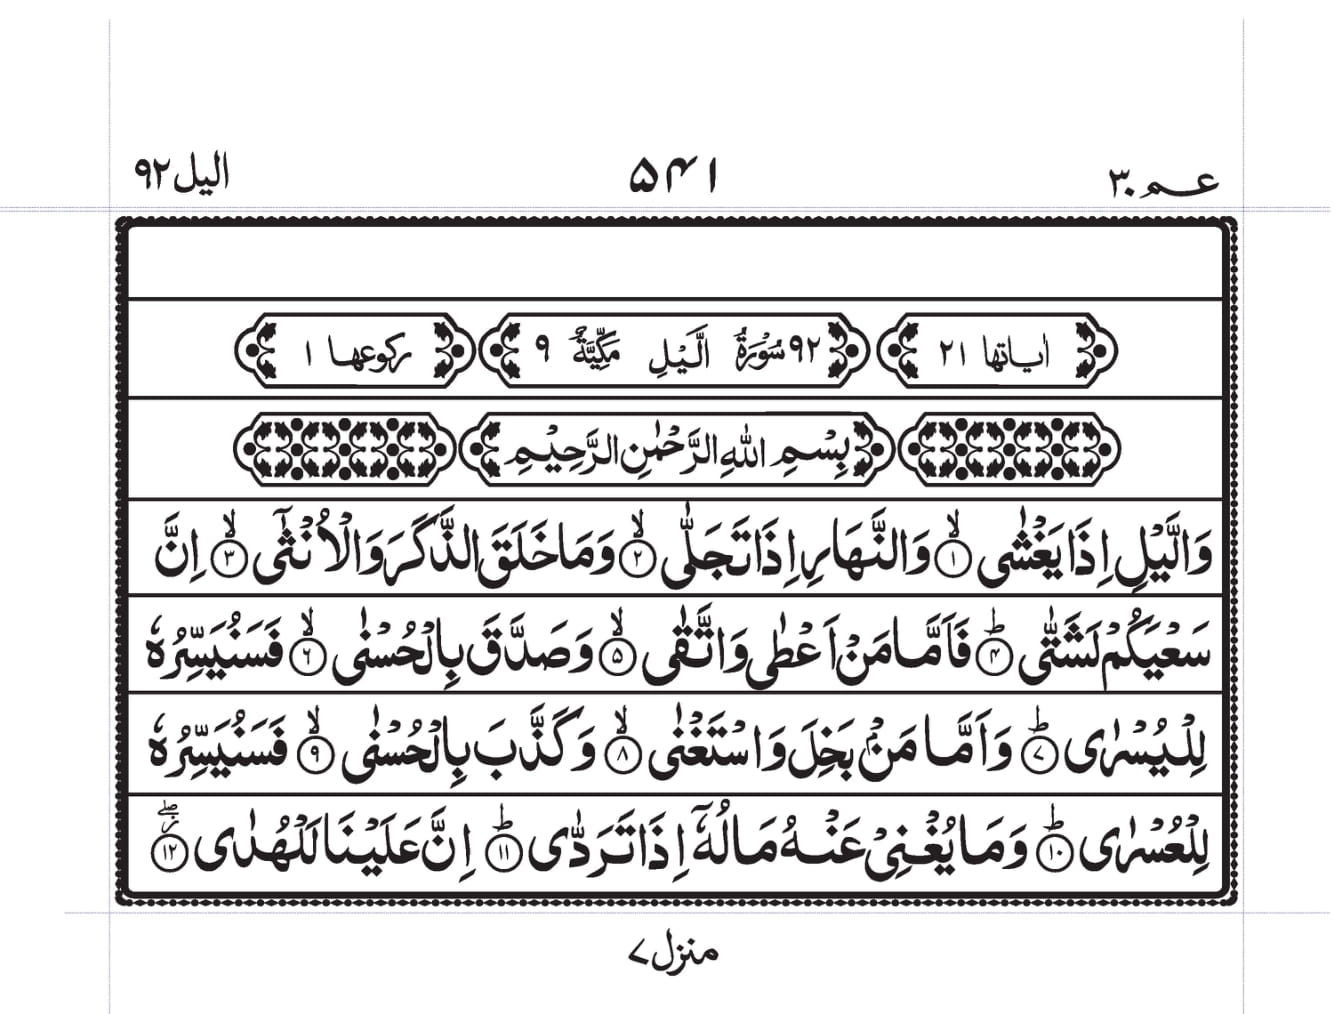 عم ٣٠ ٥٤١ اليل ٩٢
اياتها ٢١ ٩٢ سُوْرَةُ الَّيْلِ مَكِّيَّةٌ ٩ ركوعها ١
بِسْمِ اللهِ الرَّحْمٰنِ الرَّحِيْمِ
وَالَّيْلِ اِذَا يَغْشٰى ۙ﴿١﴾ وَالنَّهَارِ اِذَا تَجَلّٰى ۙ﴿٢﴾ وَمَا خَلَقَ الذَّكَرَ وَالْاُنْثٰٓى ۙ﴿٣﴾ اِنَّ
سَعْيَكُمْ لَشَتّٰى ؕ﴿٤﴾ فَاَمَّا مَنْ اَعْطٰى وَاتَّقٰى ۙ﴿٥﴾ وَصَدَّقَ بِالْحُسْنٰى ۙ﴿٦﴾ فَسَنُيَسِّرُهٗ
لِلْيُسْرٰى ؕ﴿٧﴾ وَاَمَّا مَنْۢ بَخِلَ وَاسْتَغْنٰى ۙ﴿٨﴾ وَكَذَّبَ بِالْحُسْنٰى ۙ﴿٩﴾ فَسَنُيَسِّرُهٗ
لِلْعُسْرٰى ؕ﴿١٠﴾ وَمَا يُغْنِيْ عَنْهُ مَالُهٗٓ اِذَا تَرَدّٰى ؕ﴿١١﴾ اِنَّ عَلَيْنَا لَلْهُدٰى ۖ﴿١٢﴾
منزل ٧